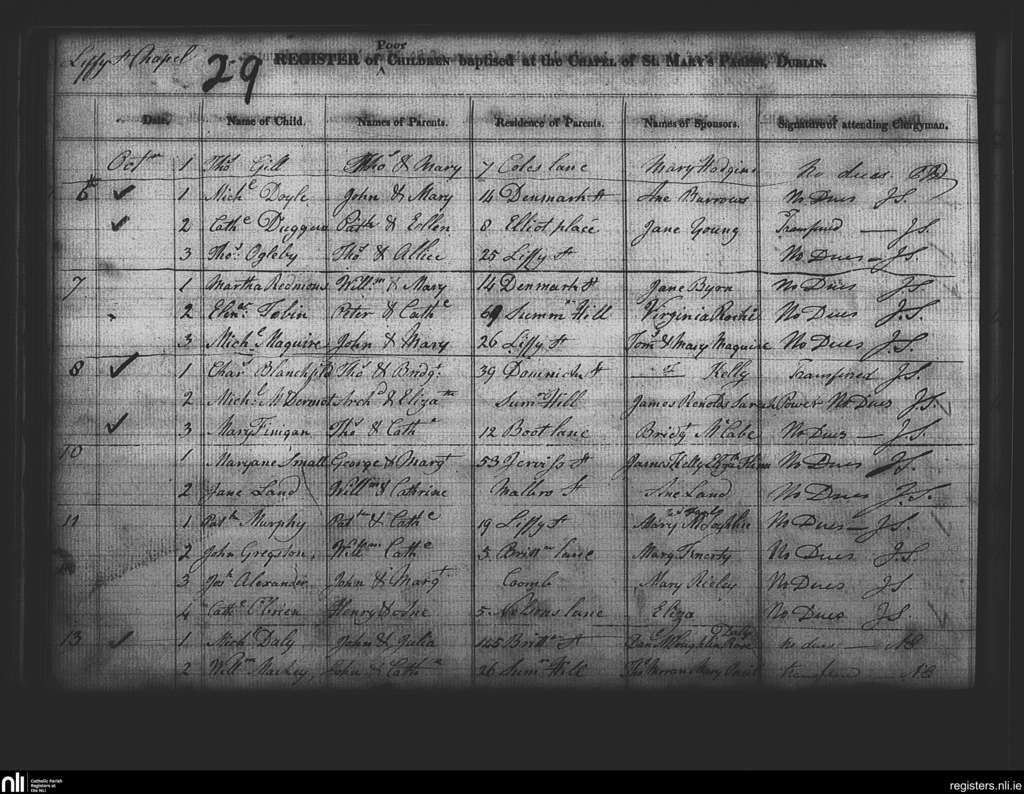 Liffy St Chapel
29
Poor
REGISTER of CHILDREN baptised at the CHAPEL of St. MARY'S PARISH, DUBLIN.
Date. Name of Child. Names of Parents. Residence of Parents. Names of Sponsors. Signature of attending Clergyman.
Octr 1 Thos Gill Thos & Mary 7 Coles lane Mary Hodgins No dues
6th 1 Michl Doyle John & Mary 14 Denmark St Ane Burrows No Dues J.S.
2 Cathe Duggan Patk & Ellen 8 Elliot place Jane Young Transfered — J.S.
3 Thos Ogleby Thos & Allice 25 Liffy St No Dues — J.S.
7 1 Martha Redmond Willm & Mary 14 Denmark St Jane Byrn No Dues J.S.
2 Elinr Tobin Peter & Cathe 69 Summr Hill Virginia Roche No Dues J.S.
3 Michl Maguire John & Mary 26 Liffy St Toms & Mary Maguire No Dues J.S.
8 1 Chars Blanchfild Thos & Bridgt 39 Dominick St Kelly Transfired J.S.
2 Michl McDermot Archd & Elizath Sumr Hill James Renolds Sarah Power No Dues J.S.
3 Mary Finigan Thos & Cathe 12 Boot lane Bridgt McCabe No Dues — J.S.
10 1 Maryane Small George & Margt 53 Jerviss St James Kelly Elizth Flinn No Dues J.S.
2 Jane Land Willm & Cathrine Malbro St Ane Land No Dues J.S.
11 1 Patk Murphy Patk & Cathe 19 Liffy St Mary McLoghlin No Dues — J.S.
2 John Gregston Willm Cathe 3 Brittn lane Mary Finerty No Dues J.S.
3 Josh Alexander John & Margt Coomb Mary Rieley No Dues J.S
4 Cathe O'Brien Henry & Ane 5 lane Eliza No Dues J.S
13 1 Michl Daly John & Julia 145 Brittn St Danl McLoughlin Rose Daly no dues —
2 Willm Mackey John & Cathe 26 Sumr Hill Thos Morran Mary transfered —
nli Catholic Parish Registers at the NLI
registers.nli.ie